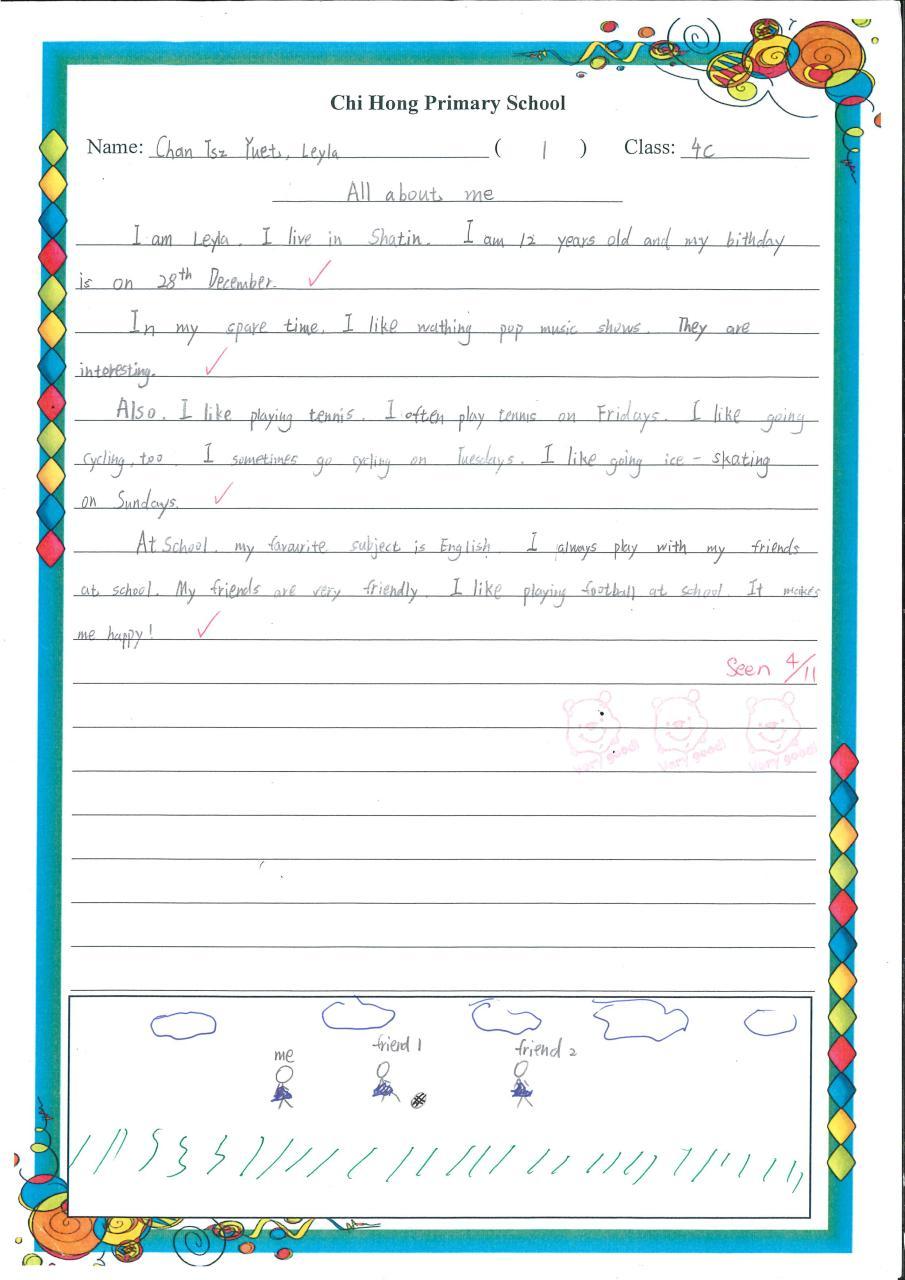 Chi Hong Primary School
Name: Chan Tsz Yuet, Leyla ( 1 ) Class: 4C
All about me
I am Leyla. I live in Shatin. I am 12 years old and my bithday
is on 28th December.
In my spare time, I like wathing pop music shows. They are
interesting.
Also, I like playing tennis. I often play tennis on Fridays. I like going
cycling, too. I sometimes go cycling on Tuesdays. I like going ice - skating
on Sundays.
At School, my favourite subject is English. I always play with my friends
at school. My friends are very friendly. I like playing football at school. It makes
me happy!
Seen 4/11
Very good! Very good! Very good!
me friend 1 friend 2